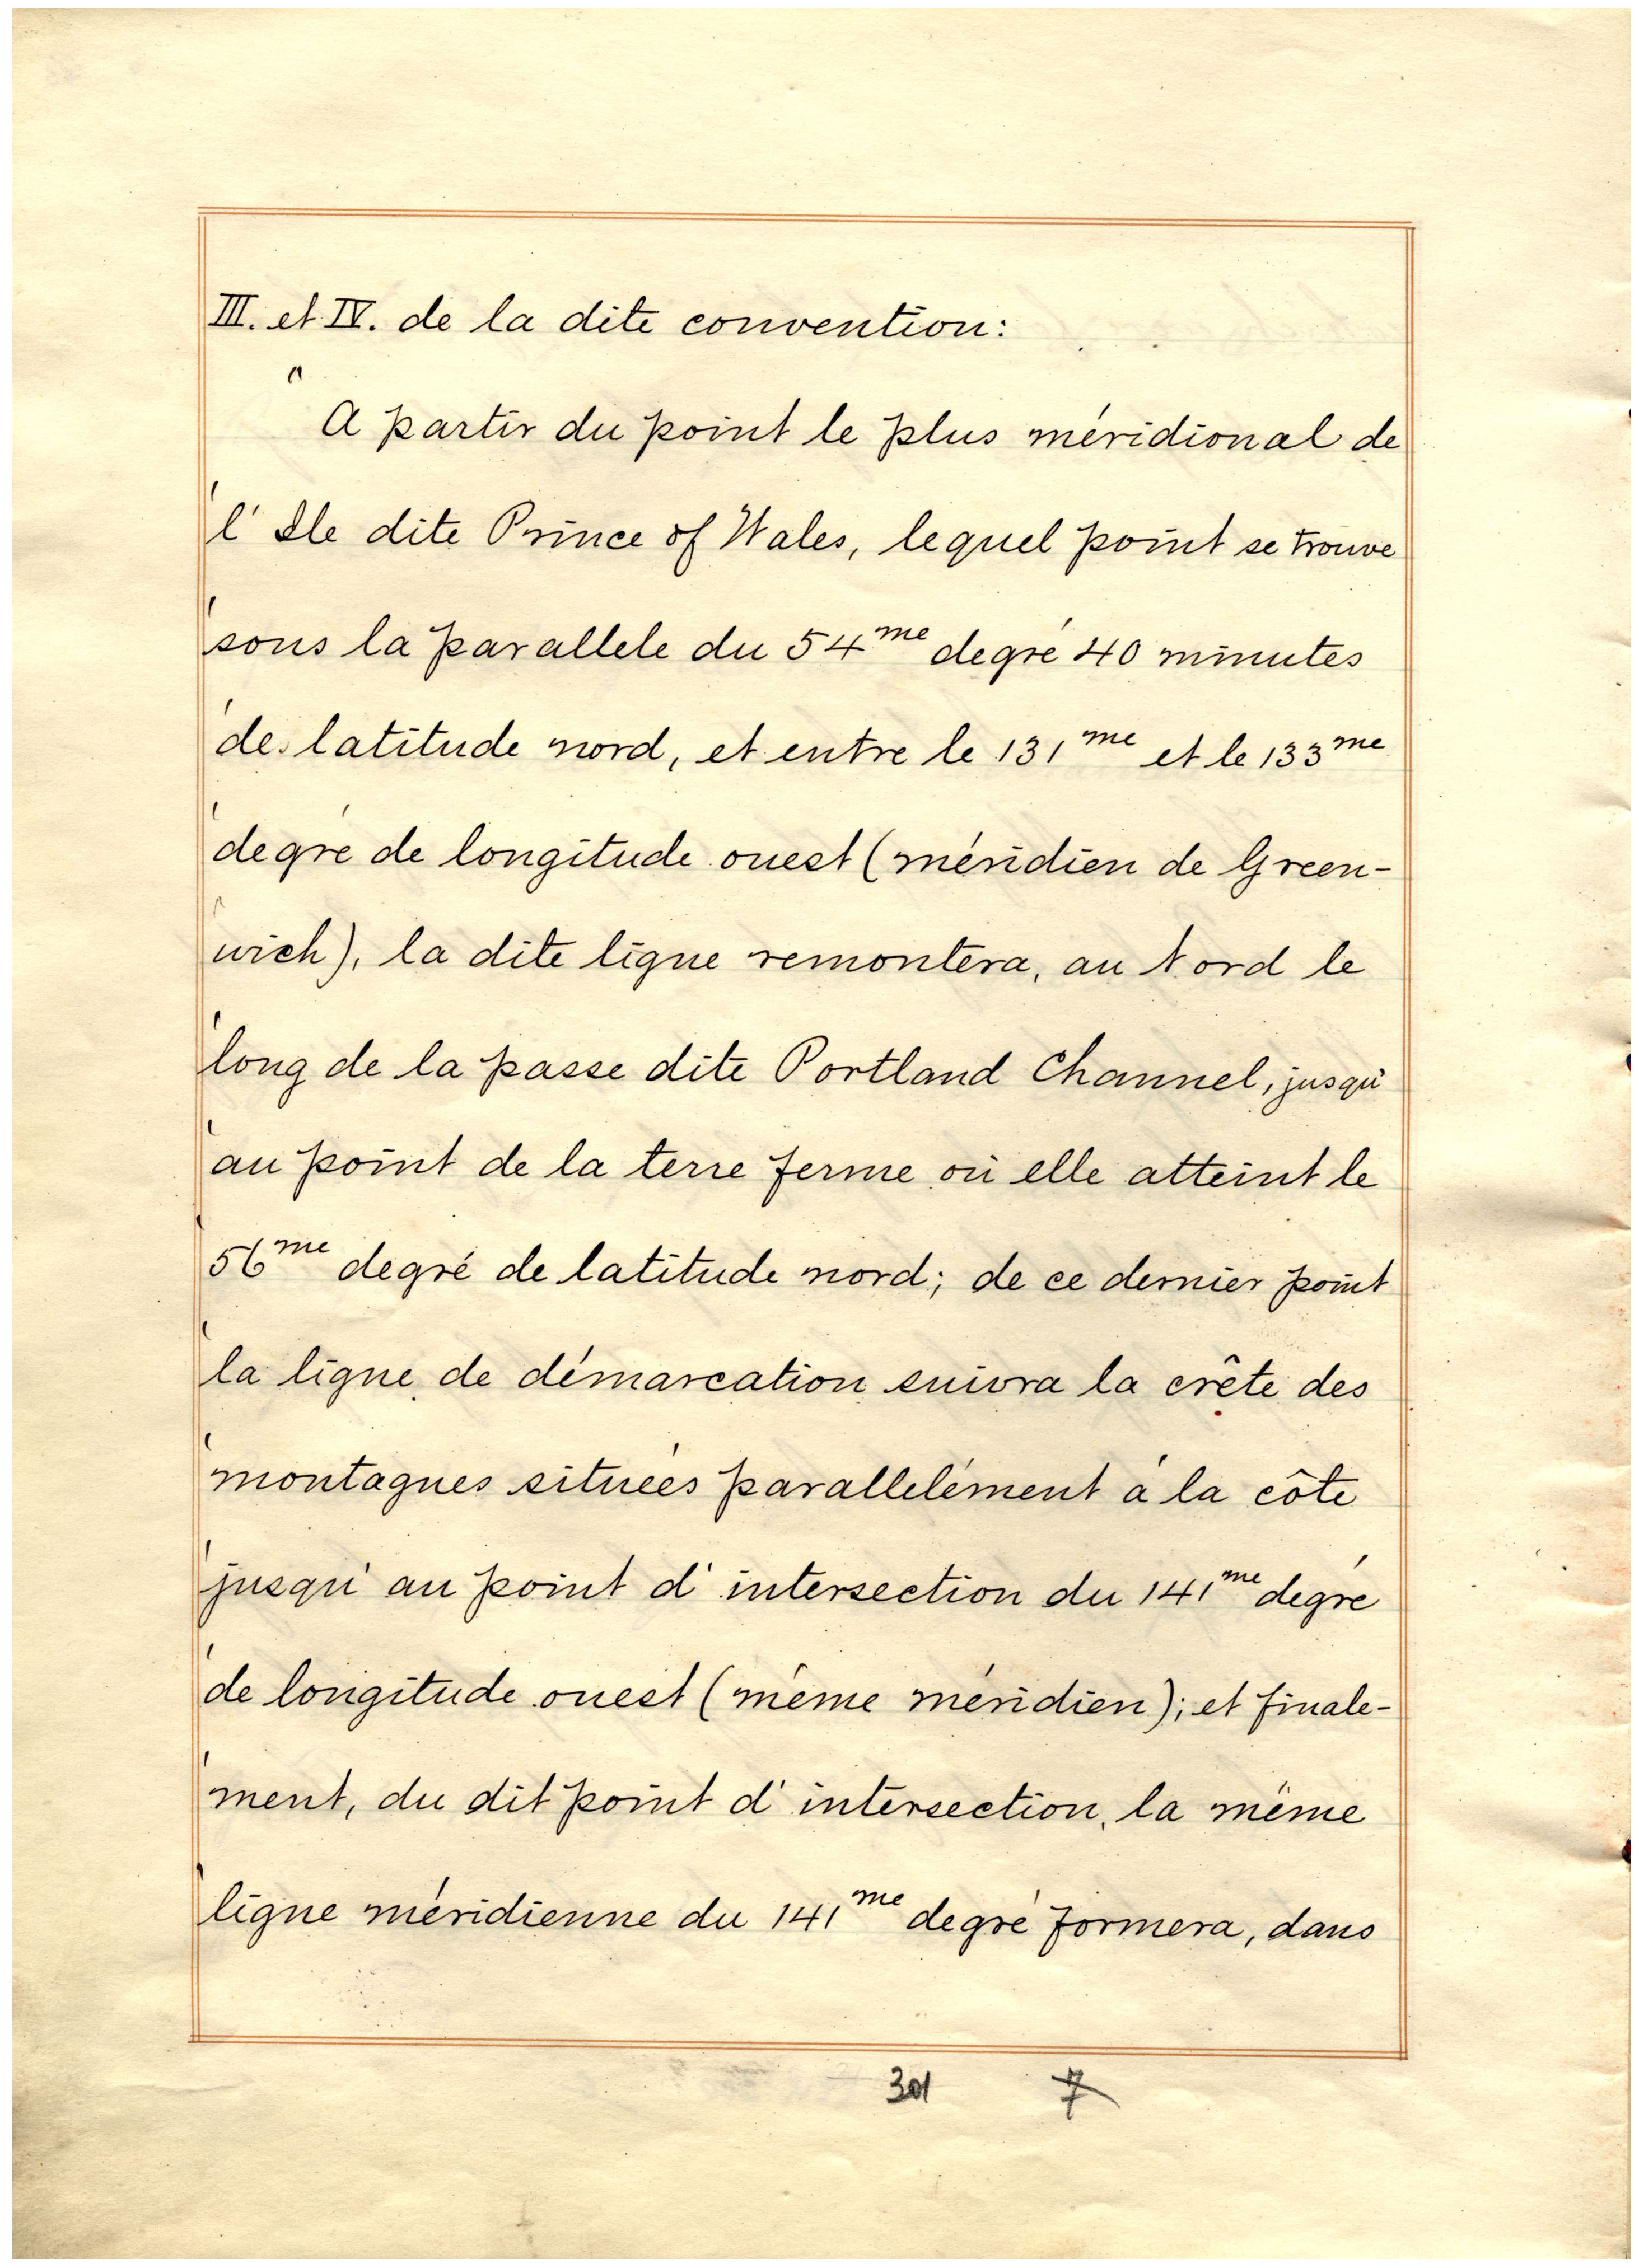 III. et IV. de la dite convention:
"
A partir du point le plus méridional de
' l' Ile dite Prince of Wales, lequel point se trouve
' sous la parallele du 54me degré 40 minutes
' de latitude nord, et entre le 131me et le 133me
' degré de longitude ouest (méridien de Green-
' wich), la dite ligne remontera, au Nord le
' long de la passe dite Portland Channel, jusqu'
' au point de la terre ferme où elle atteint le
' 56me degré de latitude nord; de ce dernier point
' la ligne de démarcation suivra la crête des
' montagnes situées parallelément à la côte
' jusqu' au point d' intersection du 141me degré
' de longitude ouest (même méridien); et finale-
' ment, du dit point d' intersection, la même
' ligne méridienne du 141me degré formera, dans
301 7